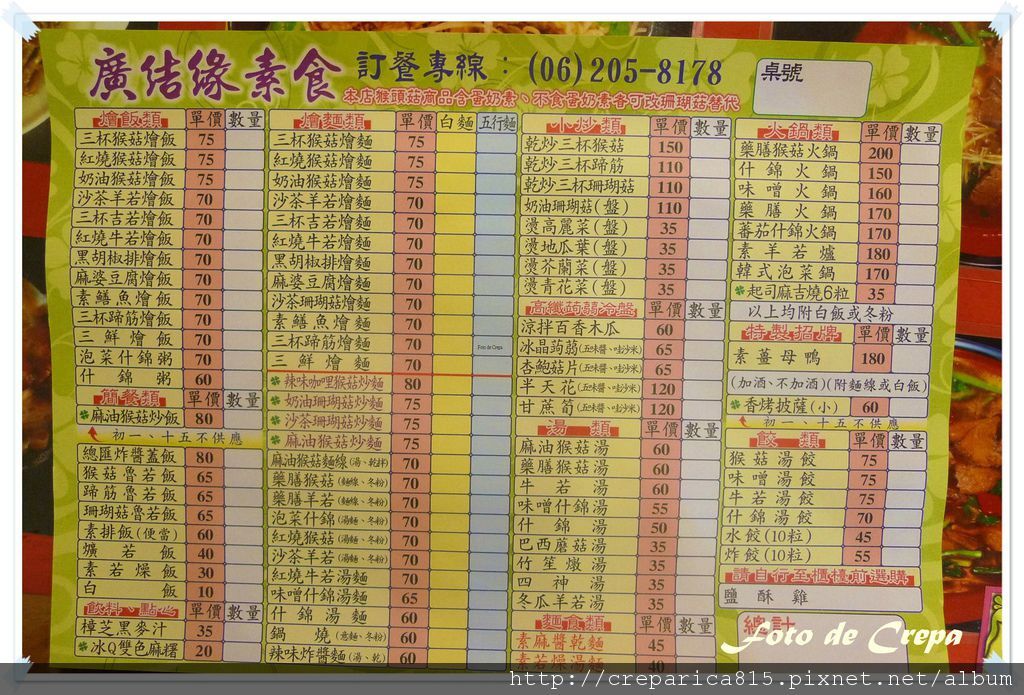 廣結緣素食 訂餐專線：(06)205-8178
本店猴頭菇商品含蛋奶素、不食蛋奶素者可改珊瑚菇替代
桌號
燴飯類 單價 數量
三杯猴菇燴飯 75
紅燒猴菇燴飯 75
奶油猴菇燴飯 75
沙茶羊若燴飯 70
三杯古若燴飯 70
紅燒牛若燴飯 70
黑胡椒排燴飯 70
麻婆豆腐燴飯 70
素鱔魚燴飯 70
三杯蹄筋燴飯 70
三鮮燴飯 70
泡菜什錦粥 70
什錦粥 60
簡餐類 單價 數量
麻油猴菇炒飯 80
初一、十五不供應
總匯炸醬蓋飯 80
猴菇魯若飯 65
蹄筋魯若飯 65
珊瑚菇魯若飯 65
素排飯(便當) 60
爌若飯 40
素若燥飯 30
白飯 10
飲料、點心 單價 數量
樟芝黑麥汁 35
冰Q雙色麻糬 20
燴麵類 單價 白麵 五行麵
三杯猴菇燴麵 75
紅燒猴菇燴麵 75
奶油猴菇燴麵 75
沙茶羊若燴麵 70
三杯古若燴麵 70
紅燒牛若燴麵 70
黑胡椒排燴麵 70
麻婆豆腐燴麵 70
沙茶珊瑚菇燴麵 70
素鱔魚燴麵 70
三杯蹄筋燴麵 70
三鮮燴麵 70
Foto de Crepa
辣味咖哩猴菇炒麵 80
奶油珊瑚菇炒麵 75
沙茶珊瑚菇炒麵 75
麻油猴菇炒麵 75
麻油猴菇麵線(湯、乾拌) 70
藥膳猴菇(麵線、冬粉) 70
藥膳羊若(麵線、冬粉) 70
泡菜什錦(湯麵、冬粉) 70
紅燒猴菇(湯麵、冬粉) 70
沙茶羊若(湯麵、冬粉) 70
紅燒牛若湯麵 70
味噌什錦湯麵 65
什錦湯麵 60
鍋燒(意麵、冬粉) 60
辣味炸醬麵(湯、乾) 60
小炒類 單價 數量
乾炒三杯猴菇 150
乾炒三杯蹄筋 110
乾炒三杯珊瑚菇 110
奶油珊瑚菇(盤) 110
燙高麗菜(盤) 35
燙地瓜葉(盤) 35
燙芥蘭菜(盤) 35
燙青花菜(盤) 35
高纖蒟蒻冷盤 單價 數量
涼拌百香木瓜 60
冰晶蒟蒻(五味醬、哇沙米) 65
杏鮑菇片(五味醬、哇沙米) 65
半天花(五味醬、哇沙米) 120
甘蔗筍(五味醬、哇沙米) 120
湯類 單價 數量
麻油猴菇湯 60
藥膳猴菇湯 60
牛若湯 60
味噌什錦湯 55
什錦湯 50
巴西蘑菇湯 35
竹笙燉湯 35
四神湯 35
冬瓜羊若湯 35
麵食類 單價 數量
素麻醬乾麵 45
素若燥湯麵 40
火鍋類 單價 數量
藥膳猴菇火鍋 200
什錦火鍋 150
味噌火鍋 160
藥膳火鍋 170
蕃茄什錦火鍋 170
素羊若爐 180
韓式泡菜鍋 170
起司麻吉燒6粒 35
以上均附白飯或冬粉
特製招牌 單價 數量
素薑母鴨 180
(加酒、不加酒)(附麵線或白飯)
香烤披薩(小) 60
初一、十五不供應
餃類 單價 數量
猴菇湯餃 75
味噌湯餃 75
牛若湯餃 75
什錦湯餃 70
水餃(10粒) 45
炸餃(10粒) 55
請自行至櫃檯前選購
鹽酥雞
總計
Foto de Crepa
http://creparica815.pixnet.net/album